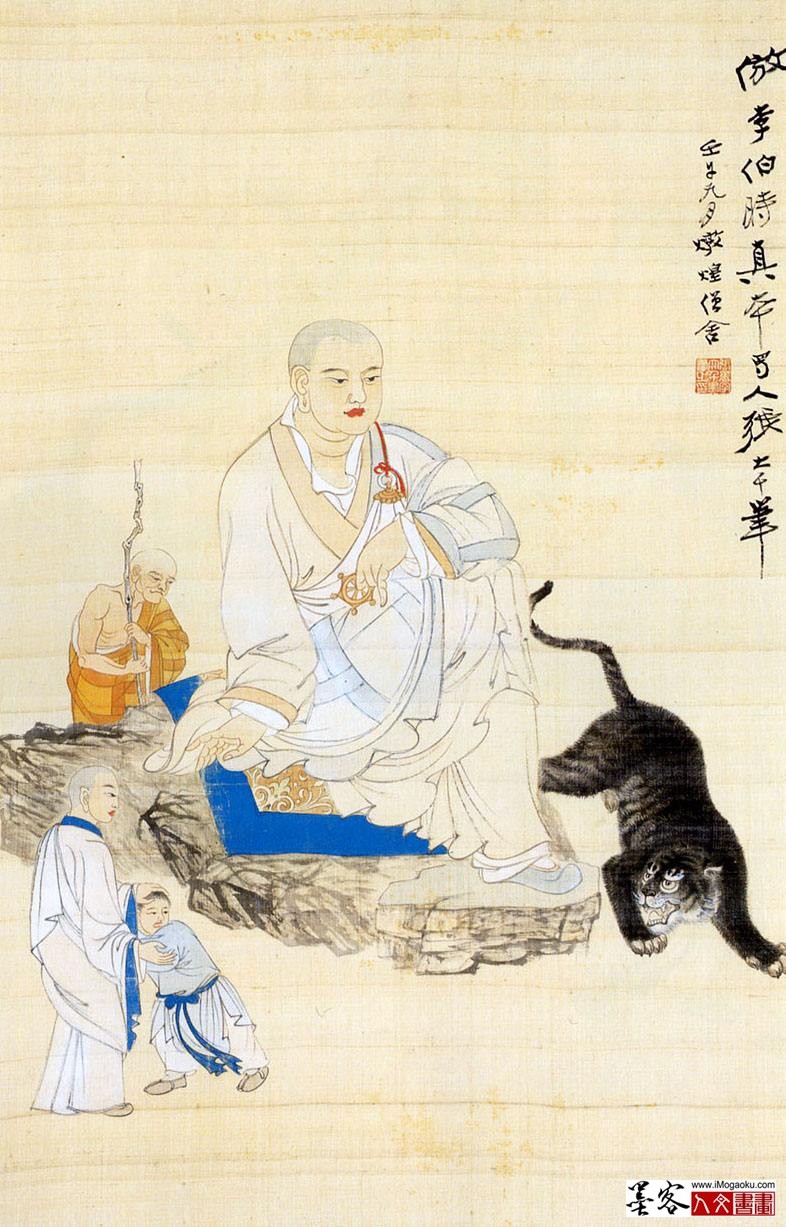 倣李伯時真本蜀人張大千筆
壬午九月燉煌僧舍
墨客
www.iMogaoku.com
人文書畫